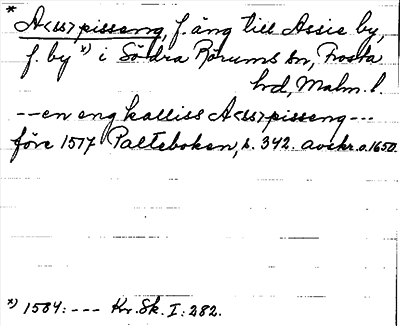 * A<ss>pisseng, f. äng till Assie by,
f. by *) i Södra Rörums sn, Frosta
hd, Malm. l.
--en eng kalliss A<ss>pisseng---
före 1517 Palteboken, s. 342. avskr. o. 1650.
*) 1584:--- Kr. Sk. I: 282.